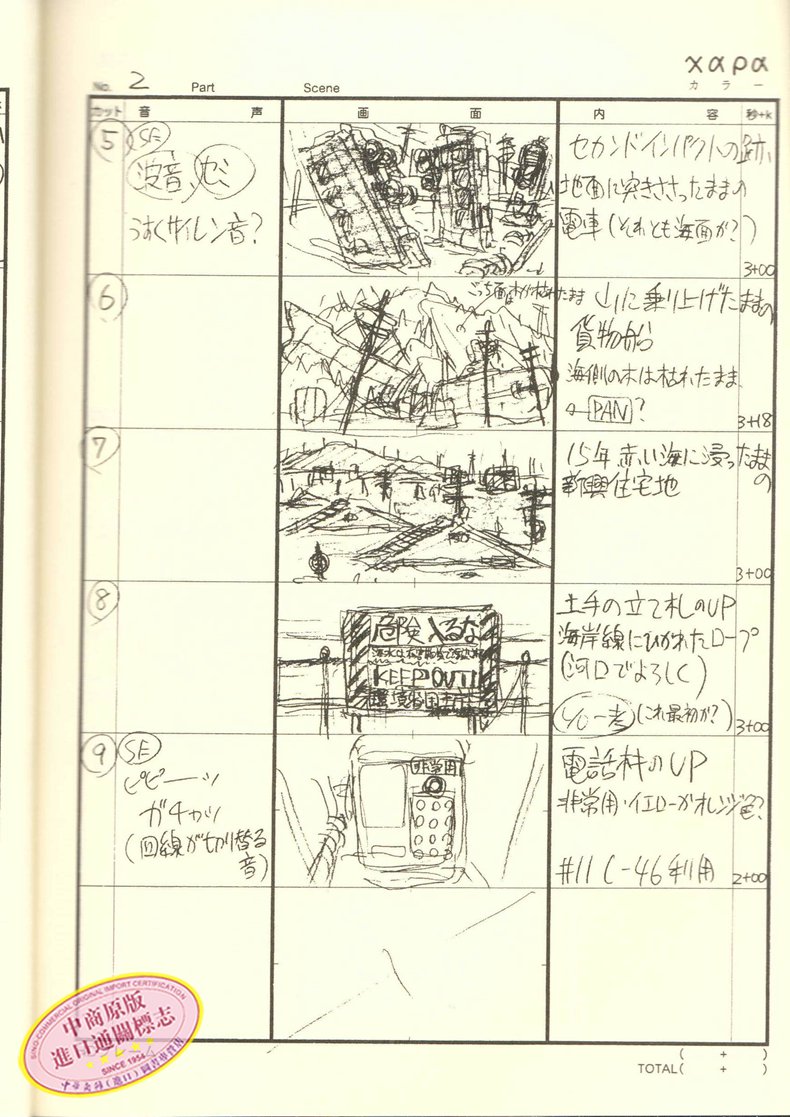 χαρα
カラー
No. 2 Part Scene
カット 音 声 画 面 内 容 秒+k
5
SE
波音、セミ
うすくサイレン音?
セカンドインパクトの跡、
地面に突きささったままの
電車(それとも海面か?)
3+00
6
こっち面は木が枯れたまま
山に乗り上げたままの
貨物船
海側の木は枯れたまま
←PAN?
3+18
7
15年赤い海に浸ったままの
新興住宅地
3+00
8
危険 入るな
KEEP OUT!!
土手の立て札のUP
海岸線にひかれたロープ
(河口でよろしく)
(これ最初か?)
3+00
9
SE
ピピーッ
ガチャッ
(回線が切り替る
音)
非常用
電話機のUP
非常用・イエローかオレンジ色?
#11 C-46利用
2+00
( + )
TOTAL( + )
SINO-COMMERCIAL ORIGINAL IMPORT CERTIFICATION
中商原版
進口通關標志
SINCE 1954